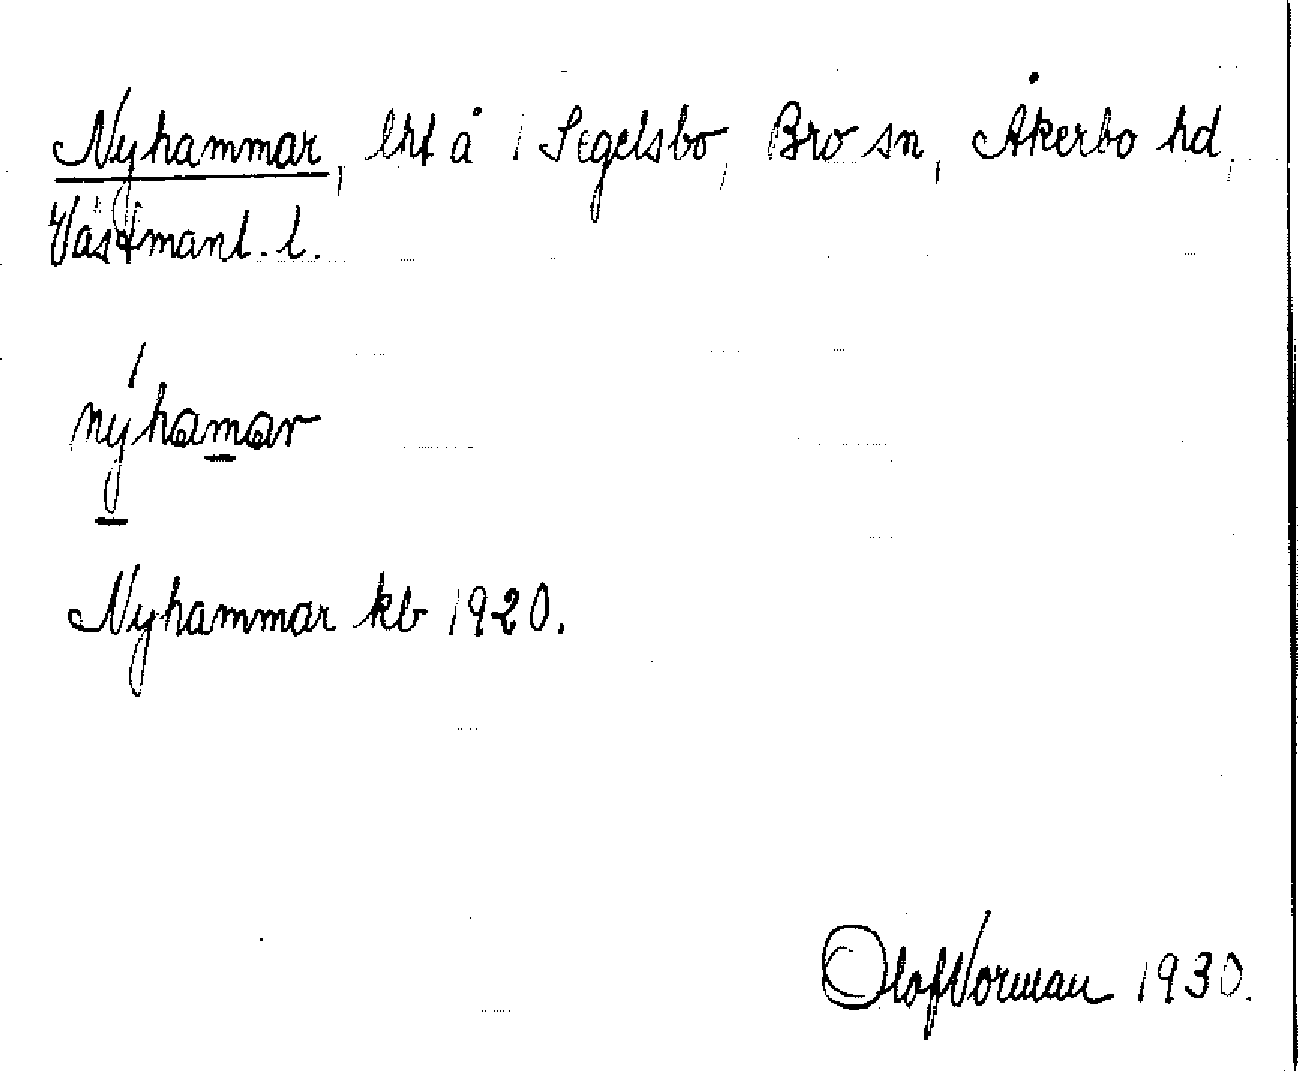 Nyhammar, lht å 1 Segelsbo, Bro sn, Åkerbo hd,
Västmanl. l.
nýhamar
Nyhammar kb 1920.
Olof Norman 1930.